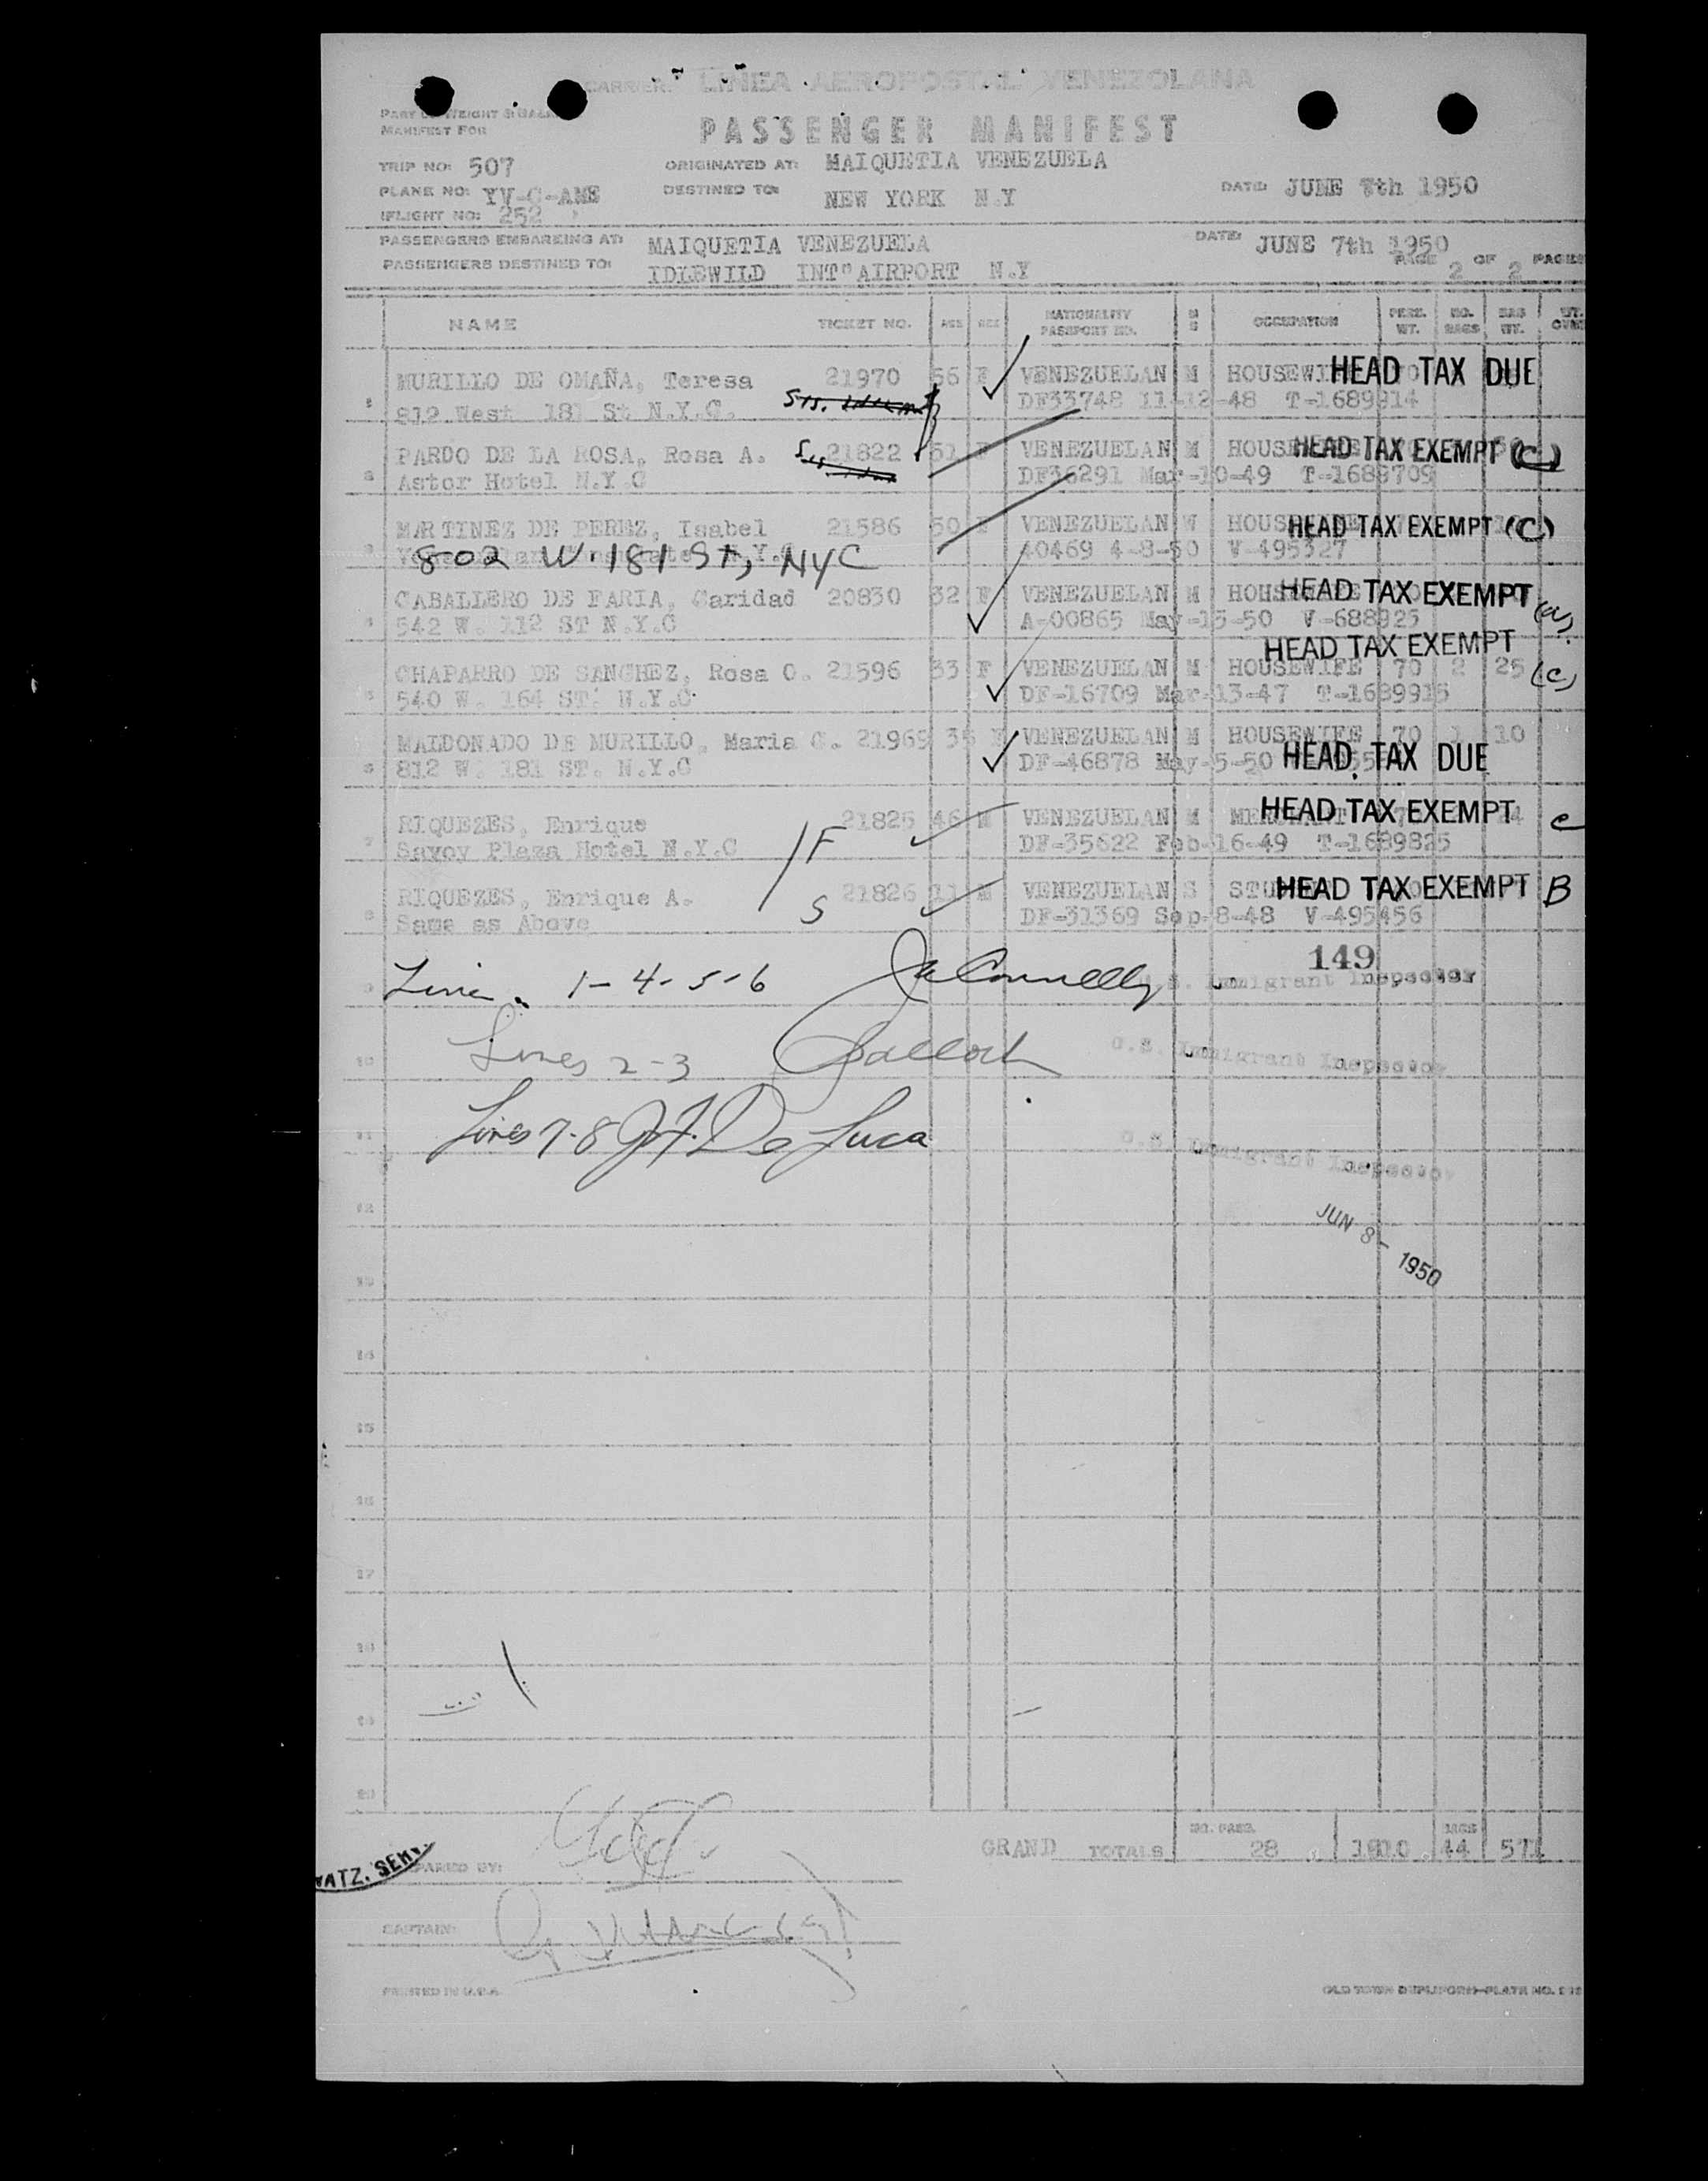 CARRIER: LINEA AEROPOSTAL VENEZOLANA
PART OF WEIGHT & BALANCE
MANIFEST FOR
PASSENGER MANIFEST
TRIP NO: 507 ORIGINATED AT: MAIQUETIA VENEZUELA
PLANE NO: YV-C-AME DESTINED TO: NEW YORK N.Y DATE: JUNE 7th 1950
FLIGHT NO: 252
PASSENGERS EMBARKING AT: MAIQUETIA VENEZUELA DATE: JUNE 7th 1950
PASSENGERS DESTINED TO: IDLEWILD INT" AIRPORT N.Y PAGE 2 OF 2 PAGES
NAME TICKET NO. AGE SEX NATIONALITY PASSPORT NO. M S OCCUPATION PERS. WT. NO. BAGS BAG WT. WT.
1 MURILLO DE OMAÑA, Teresa 21970 56 F VENEZUELAN M HOUSEWIFE 70 HEAD TAX DUE
812 West 181 St N.Y.C. DF33748 11-12-48 T-1689914
2 PARDO DE LA ROSA, Rosa A. 21822 51 F VENEZUELAN M HOUSEWIFE HEAD TAX EXEMPT (C)
Astor Hotel N.Y.C DF36291 Mar-10-49 T-1688709
3 MARTINEZ DE PEREZ, Isabel 21586 50 F VENEZUELAN W HOUSEWIFE HEAD TAX EXEMPT (C)
802 W. 181 St, NYC 40469 4-8-50 V-495327
4 CABALLERO DE FARIA, Caridad 20830 32 F VENEZUELAN M HOUSEWIFE HEAD TAX EXEMPT (a)
542 W. 112 ST N.Y.C A-00865 May-15-50 V-688925
HEAD TAX EXEMPT (C)
5 CHAPARRO DE SANCHEZ, Rosa O. 21596 33 F VENEZUELAN M HOUSEWIFE 70 2 25
540 W. 164 ST. N.Y.C DF-16709 Mar-13-47 T-1689915
6 MALDONADO DE MURILLO, Maria C. 21969 35 F VENEZUELAN M HOUSEWIFE 70 1 10
812 W. 181 ST. N.Y.C DF-46878 May-5-50 HEAD TAX DUE
7 RIQUEZES, Enrique 21825 46 M VENEZUELAN M MERCHANT HEAD TAX EXEMPT C
Savoy Plaza Hotel N.Y.C F DF-35622 Feb-16-49 T-1689825
8 RIQUEZES, Enrique A. 21826 11 M VENEZUELAN S STUDENT HEAD TAX EXEMPT B
Same as Above S DF-31369 Sep-8-48 V-495456
149
9 Line 1-4-5-6 J Connelly U.S. Immigrant Inspector
10 Lines 2-3 U.S. Immigrant Inspector
11 Lines 7-8 J.F. De Luca U.S. Immigrant Inspector
12
JUN 8- 1950
13
14
15
16
17
18
19
20
GRAND TOTALS NO. PASS. 28 1810 BAGS 44 571
PREPARED BY:
CAPTAIN:
PRINTED IN U.S.A. OLD TOWN DUPLIFORM-PLATE NO.